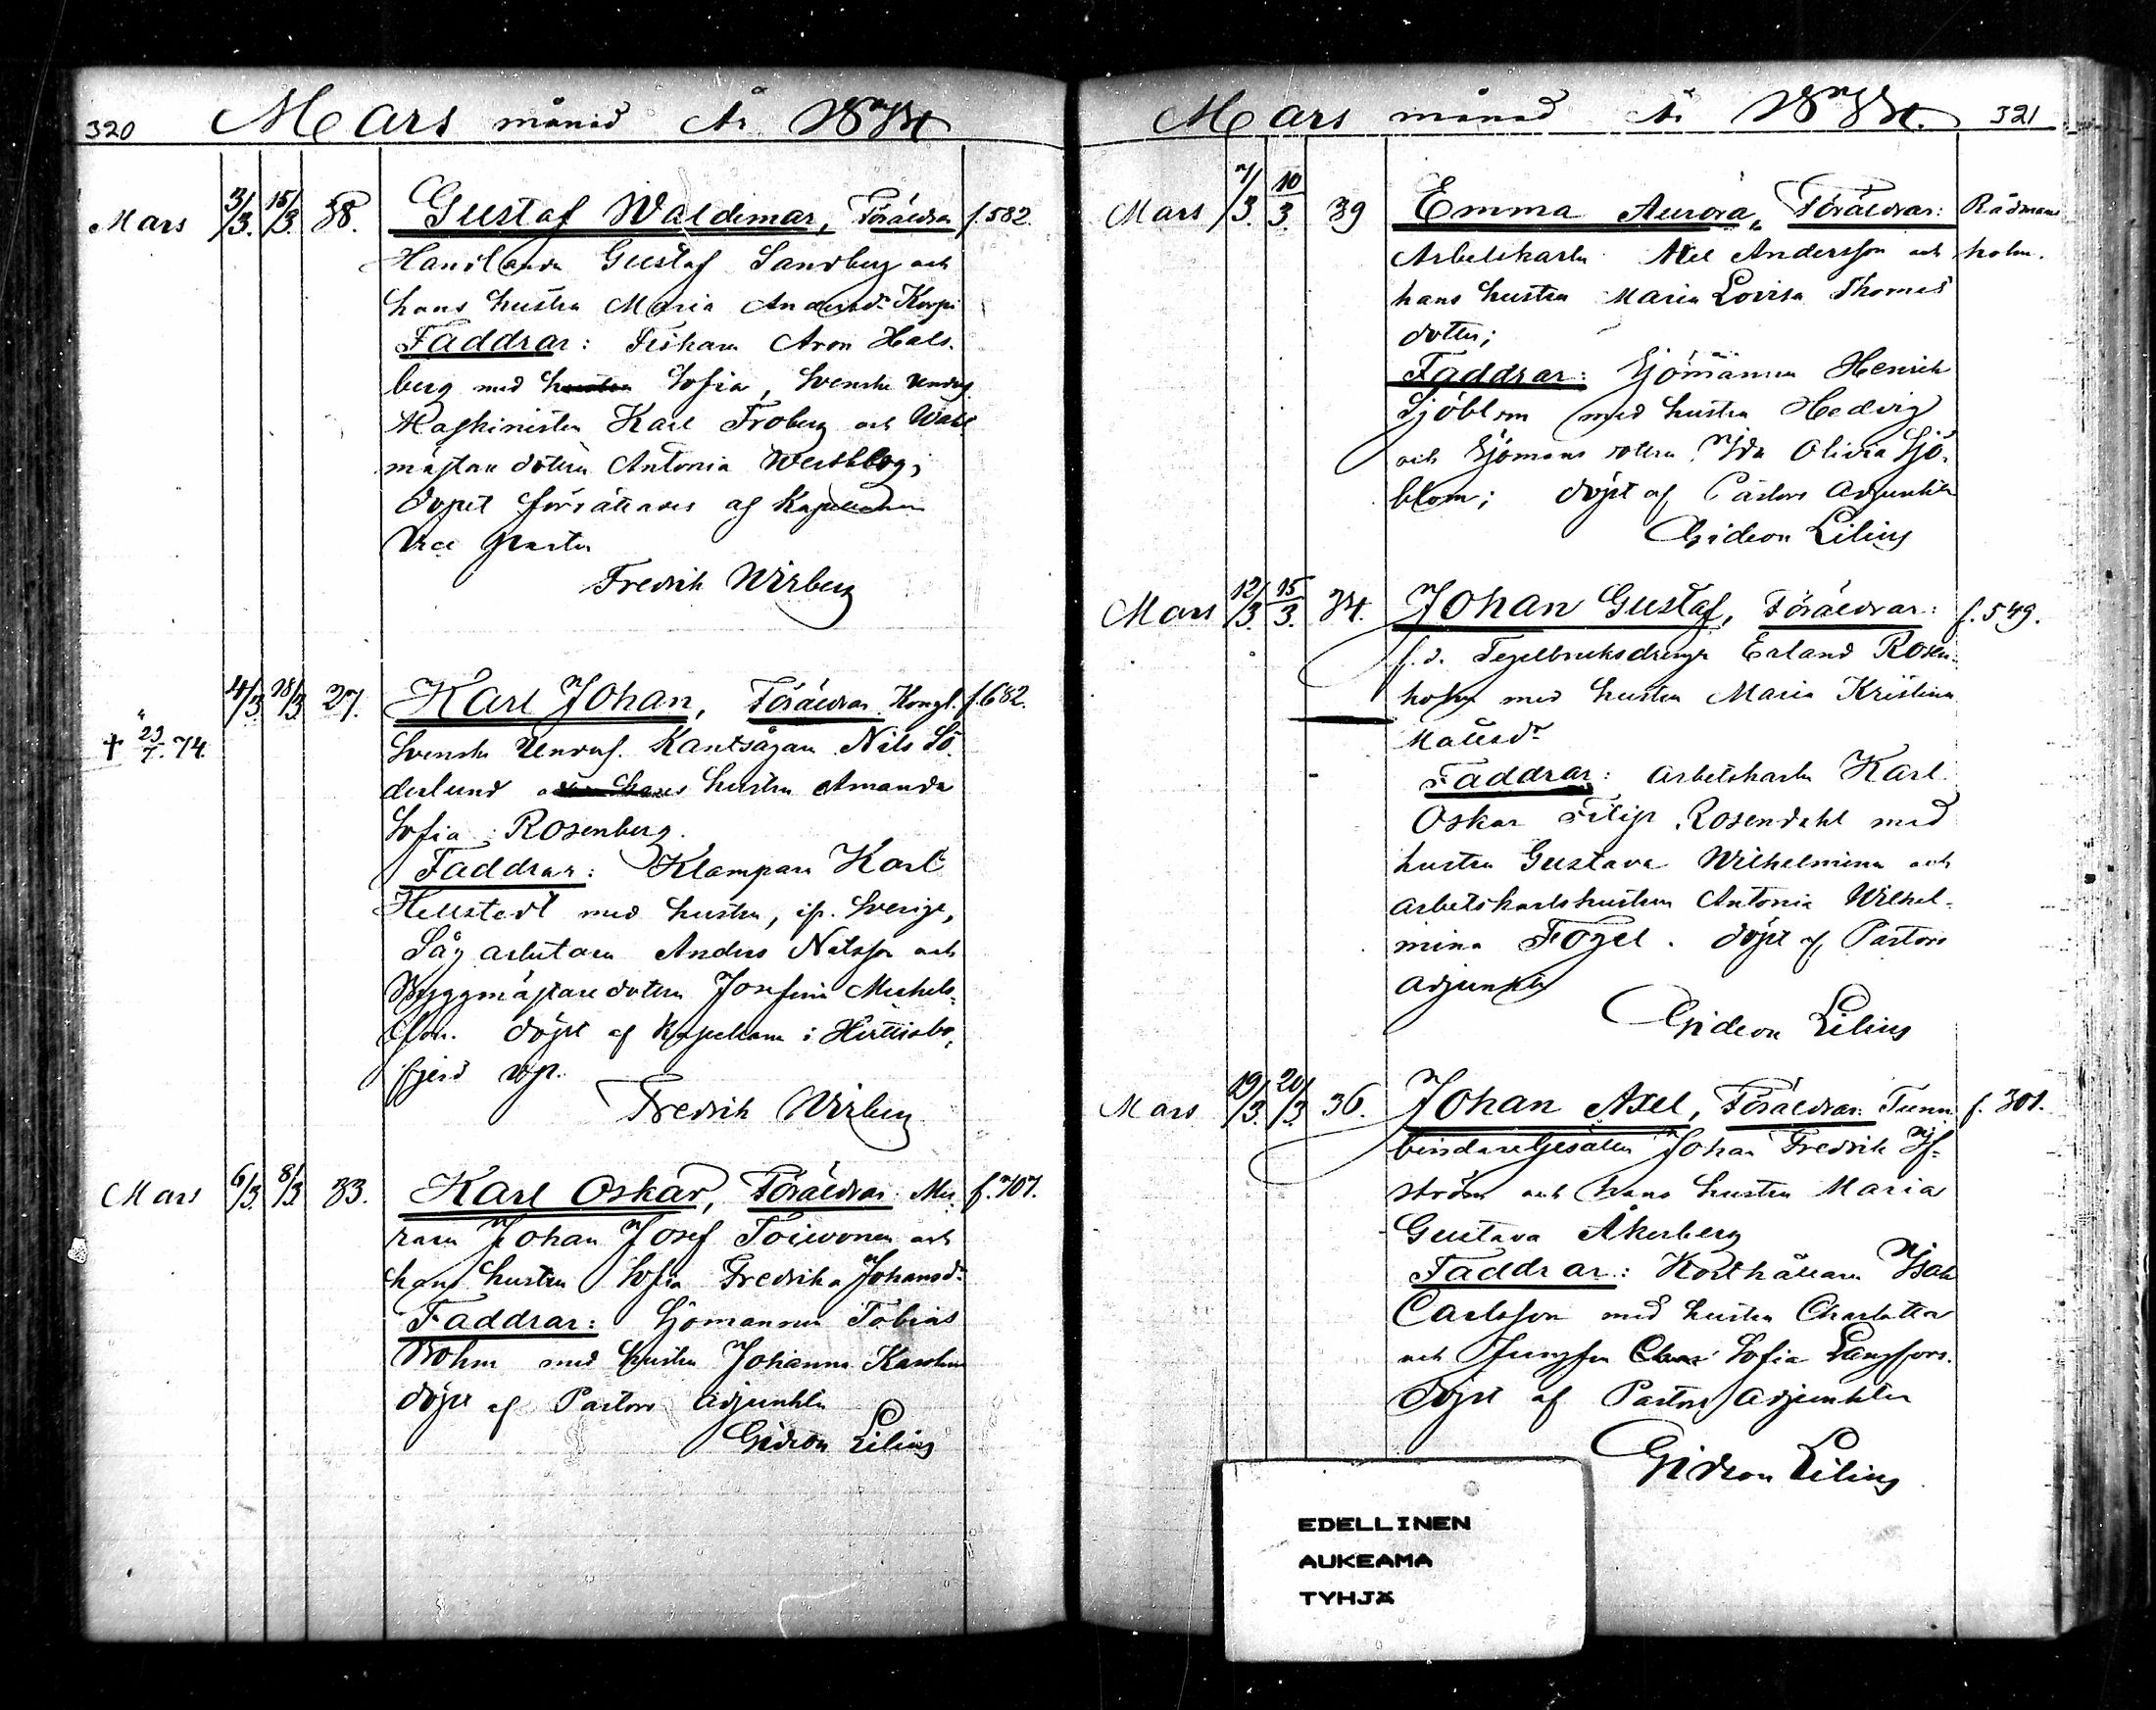 320 Mars månad År 1874
Mars 3/3. 15/3. 38. Gustaf Waldemar, Föräldrar f. 582.
Handlanden Gustaf Sandberg och
hans hustru Maria Andersdr Korpi
Faddrar: Fiskare Aron Hals-
berg med hustru Sofia, Svenske Unders.
Maskinisten Karl Froberg och
mästare dotern Antonia
Dopet förrättades af Kapellanen
Vice Pastor
Fredrik Wirberg
4/3. 18/3. 27. Karl Johan, Föräldrar. Kongl. f. 682.
† 23/7. 74.
Svenske Unders. Kantsågare Nils Sö-
derlund och hans hustru Amanda
Sofia Rosenberg.
Faddrar: Klampare Karl
Hellstedt med hustru, ifr. Sverige,
Såg arbetaren Anders Nilsson och
Byggmästare dotern Josefina Michels-
son. döpt af Kapellanen i Hvittisbo-
fjerd vp.
Fredrik Wirberg
Mars 6/3. 8/3. 33. Karl Oskar, Föräldrar: Mu- f. 707.
raren Johan Josef Toiwonen och
hans hustru Sofia Fredrika Johansdr
Faddrar: Sjömannen Tobias
Bohm med hustru Johanna Karolina
döpt af Pastors Adjunkten
Gideon Lilius
Mars månad År 1874. 321
Mars 7/3. 10/3. 39 Emma Aurora, Föräldrar: Rådmans
Arbetskarlen Axel Andersson och holm.
hans hustru Maria Lovisa Thomas
dotter;
Faddrar: Sjömannen Henrik
Sjöblom med hustru Hedvig
och Sjömans dotern Ida Olivia Sjö-
blom; döpt af Pastors Adjunkten
Gideon Lilius
Mars 12/3. 15/3. 34. Johan Gustaf, Föräldrar: f. 549.
f. d. Tegelbruksdrengen Erland Rosen-
holm med hustru Maria Kristina
Mattsdr
Faddrar: Arbetskarlen Karl
Oskar Filip Rosendahl med
hustru Gustava Wilhelmina och
arbetskarlshustrun Antonia Wilhel-
mina Fogel. döpt af Pastors
adjunkten
Gideon Lilius
Mars 19/3. 20/3. 36. Johan Axel, Föräldrar: Tunn- f. 301.
bindaregesällen Johan Fredrik
ström och hans hustru Maria
Gustava Åkerberg
Faddrar: Korthållaren Isak
Carlsson med hustru Charlotta
och Jungfru Sofia Langfors.
döpt af Pastors Adjunkten
Gideon Lilius
EDELLINEN
AUKEAMA
TYHJÄ